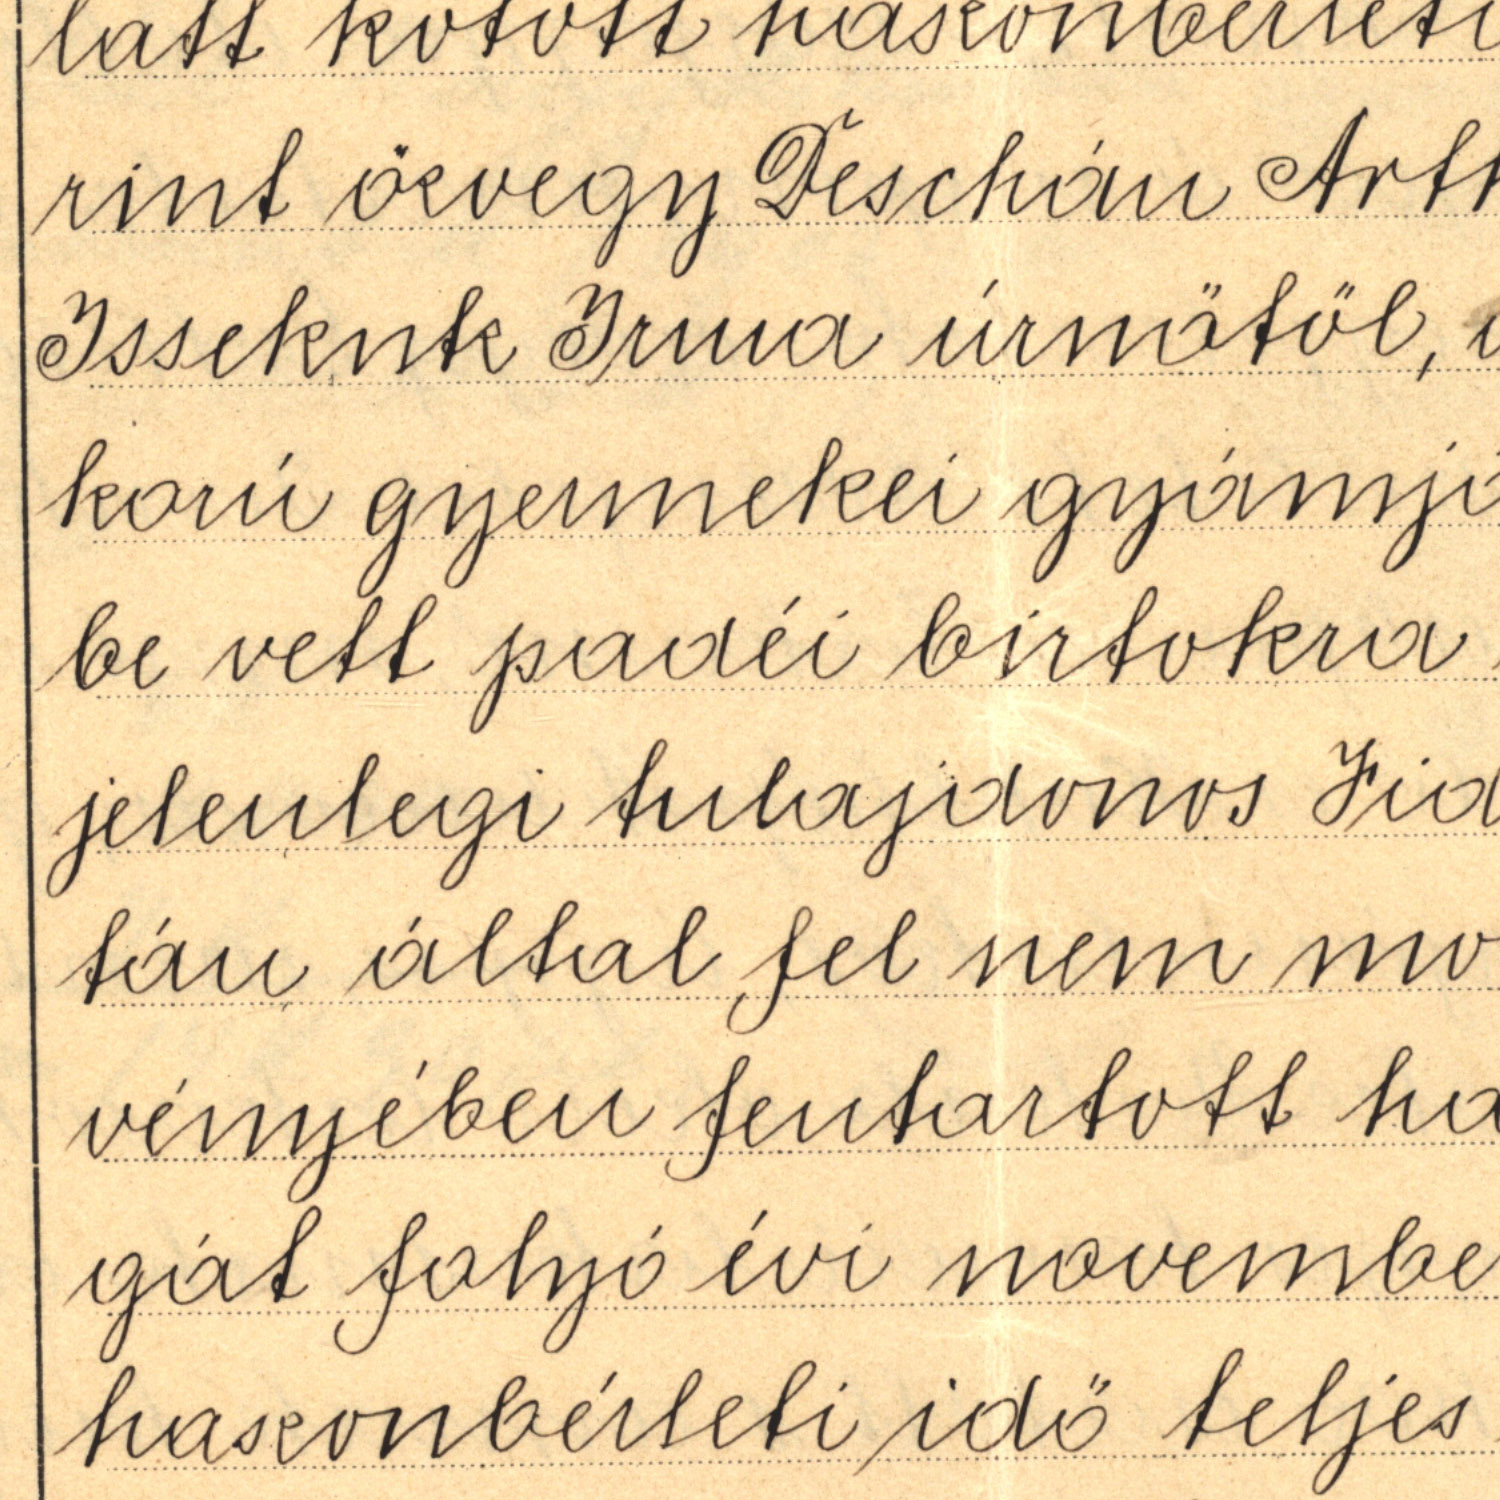 latt kötött haszonbérleti
rint özvegy Deschán Arth
Issekutz Irma úrnőtől,
korú gyermekei gyámjá
be vett padéi birtokra
jelenlegi tulajdonos Fid
tán által fel nem mo
vényében fentartott ha
gát folyó évi novembe
haszonbérleti idő teljes